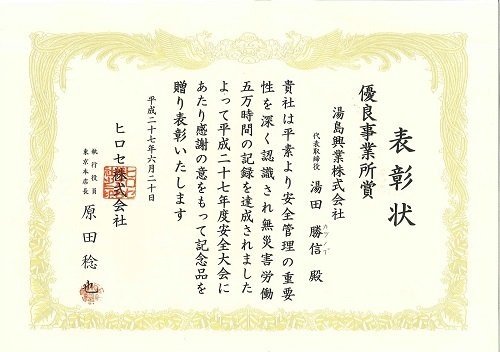 表彰状
優良事業所賞
湯島興業株式会社
代表取締役 湯田勝信殿
カツノブ
貴社は平素より安全管理の重要
性を深く認識され無災害労働
五万時間の記録を達成されました
よって平成二十七年度安全大会に
あたり感謝の意をもって記念品を
贈り表彰いたします
平成二十七年六月二十日
ヒロセ株式会社
執行役員
東京本店長
原田稔也